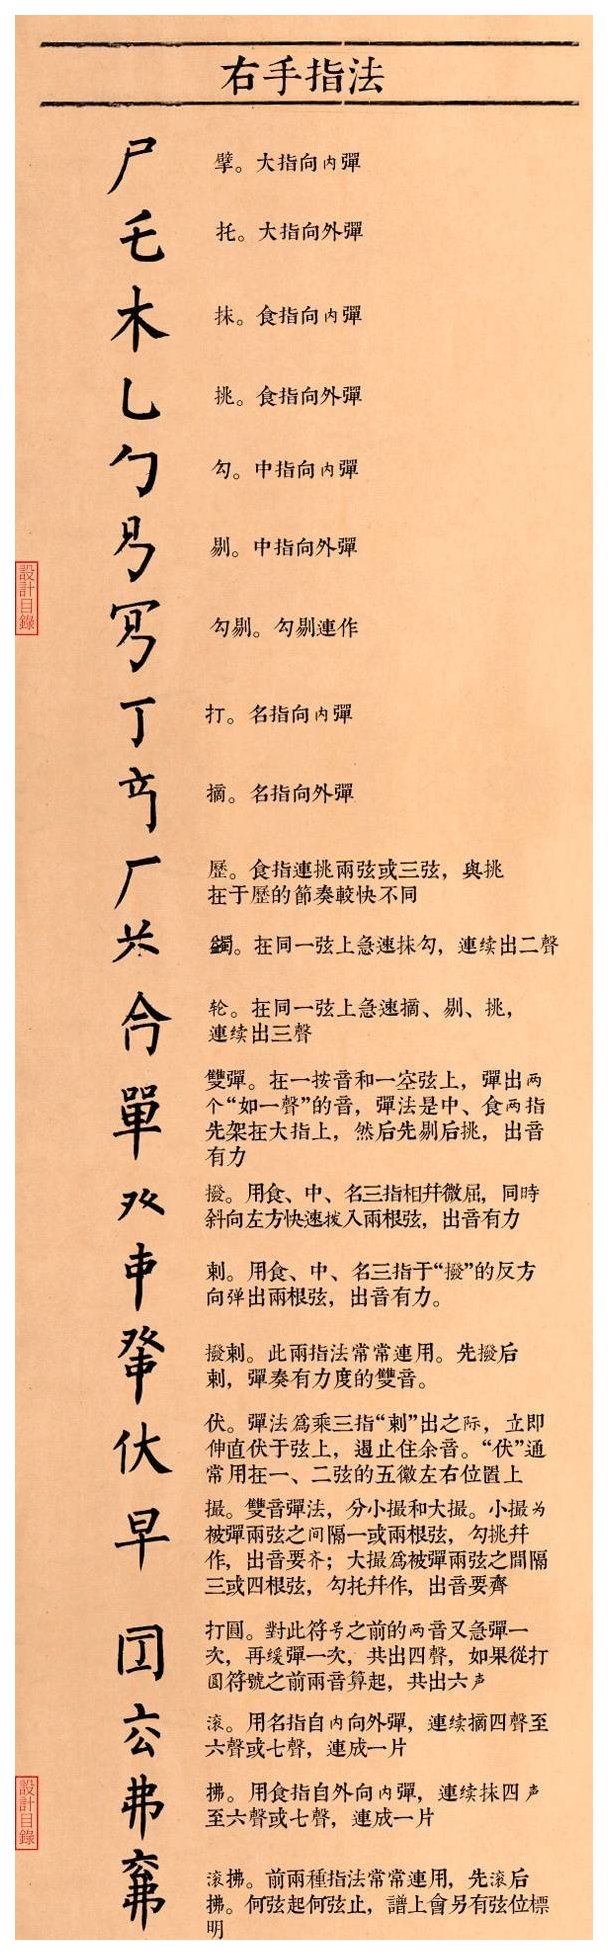 右手指法
尸 擘。大指向内彈
乇 托。大指向外彈
木 抹。食指向内彈
乚 挑。食指向外彈
勹 勾。中指向内彈
剔。中指向外彈
勾剔。勾剔連作
丁 打。名指向内彈
摘。名指向外彈
厂 歷。食指連挑兩弦或三弦，與挑
在于歷的節奏較快不同
蠲。在同一弦上急速抹勾，連续出二聲
轮。在同一弦上急速摘、剔、挑，
連续出三聲
單 雙彈。在一按音和一空弦上，彈出两
个“如一聲”的音，彈法是中、食两指
先架在大指上，然后先剔后挑，出音
有力
撥。用食、中、名三指相幷微屈，同時
斜向左方快速拨入兩根弦，出音有力
剌。用食、中、名三指于“撥”的反方
向弹出兩根弦，出音有力。
撥剌。此兩指法常常連用。先撥后
剌，彈奏有力度的雙音。
伏 伏。彈法爲乘三指“剌”出之际，立即
伸直伏于弦上，遏止住余音。“伏”通
常用在一、二弦的五徽左右位置上
早 撮。雙音彈法，分小撮和大撮。小撮为
被彈兩弦之间隔一或兩根弦，勾挑幷
作，出音要齐；大撮爲被彈兩弦之間隔
三或四根弦，勾托幷作，出音要齊
打圓。對此符号之前的两音又急彈一
次，再缓彈一次，共出四聲，如果從打
圆符號之前兩音算起，共出六声
滚。用名指自内向外彈，連续摘四聲至
六聲或七聲，連成一片
弗 拂。用食指自外向内彈，連续抹四声
至六聲或七聲，連成一片
滚拂。前兩種指法常常連用，先滚后
拂。何弦起何弦止，譜上會另有弦位標
明
設計目錄
設計目錄